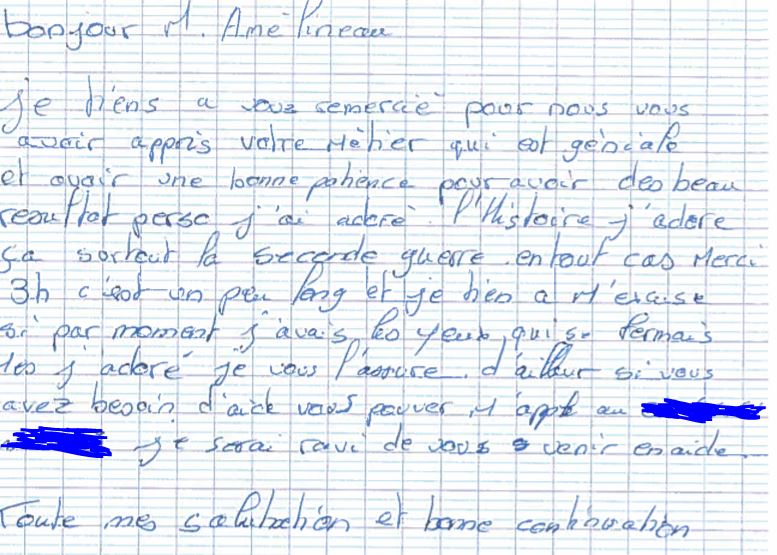 bonjour M. Amélineau
je tiens a vous remercié pour nous vous
avoir appris votre Métier qui est géniale
et avoir une bonne patience pour avoir des beau
resultat perso j'ai adoré. l'Histoire j'adore
ça surtout la seconde guerre. en tout cas Merci
3h c'est un peu long et je tien a M'excuse
si par moment j'avais les yeux qui se fermais
j'adoré je vous l'assure. d'ailleur si vous
avez besoin d'aide vous pouver M'app au
je serai ravi de vous venir en aide.
Toute mes salutation et bonne continuation